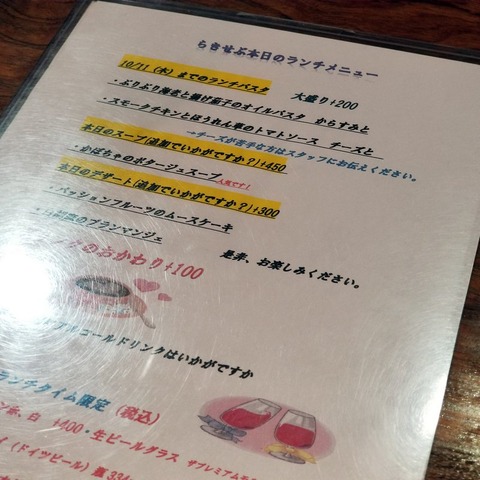 らきせぷ本日のランチメニュー
10/11（木）までのランチパスタ 大盛り+200
・ぷりぷり海老と揚げ茄子のオイルパスタ からすみと
・スモークチキンとほうれん草のトマトソース チーズと
→チーズが苦手な方はスタッフにお伝えください。
本日のスープ(追加でいかがですか？)+450
・かぼちゃのポタージュスープ 人気です！
本日のデザート(追加でいかがですか？)+300
・パッションフルーツのムースケーキ
のブランマンジェ
是非、お楽しみください。
のおかわり+100
アルコールドリンクはいかがですか
ランチタイム限定 （税込）
白 +400・生ビールグラス サプレミアムモ
（ドイツビール）瓶 334